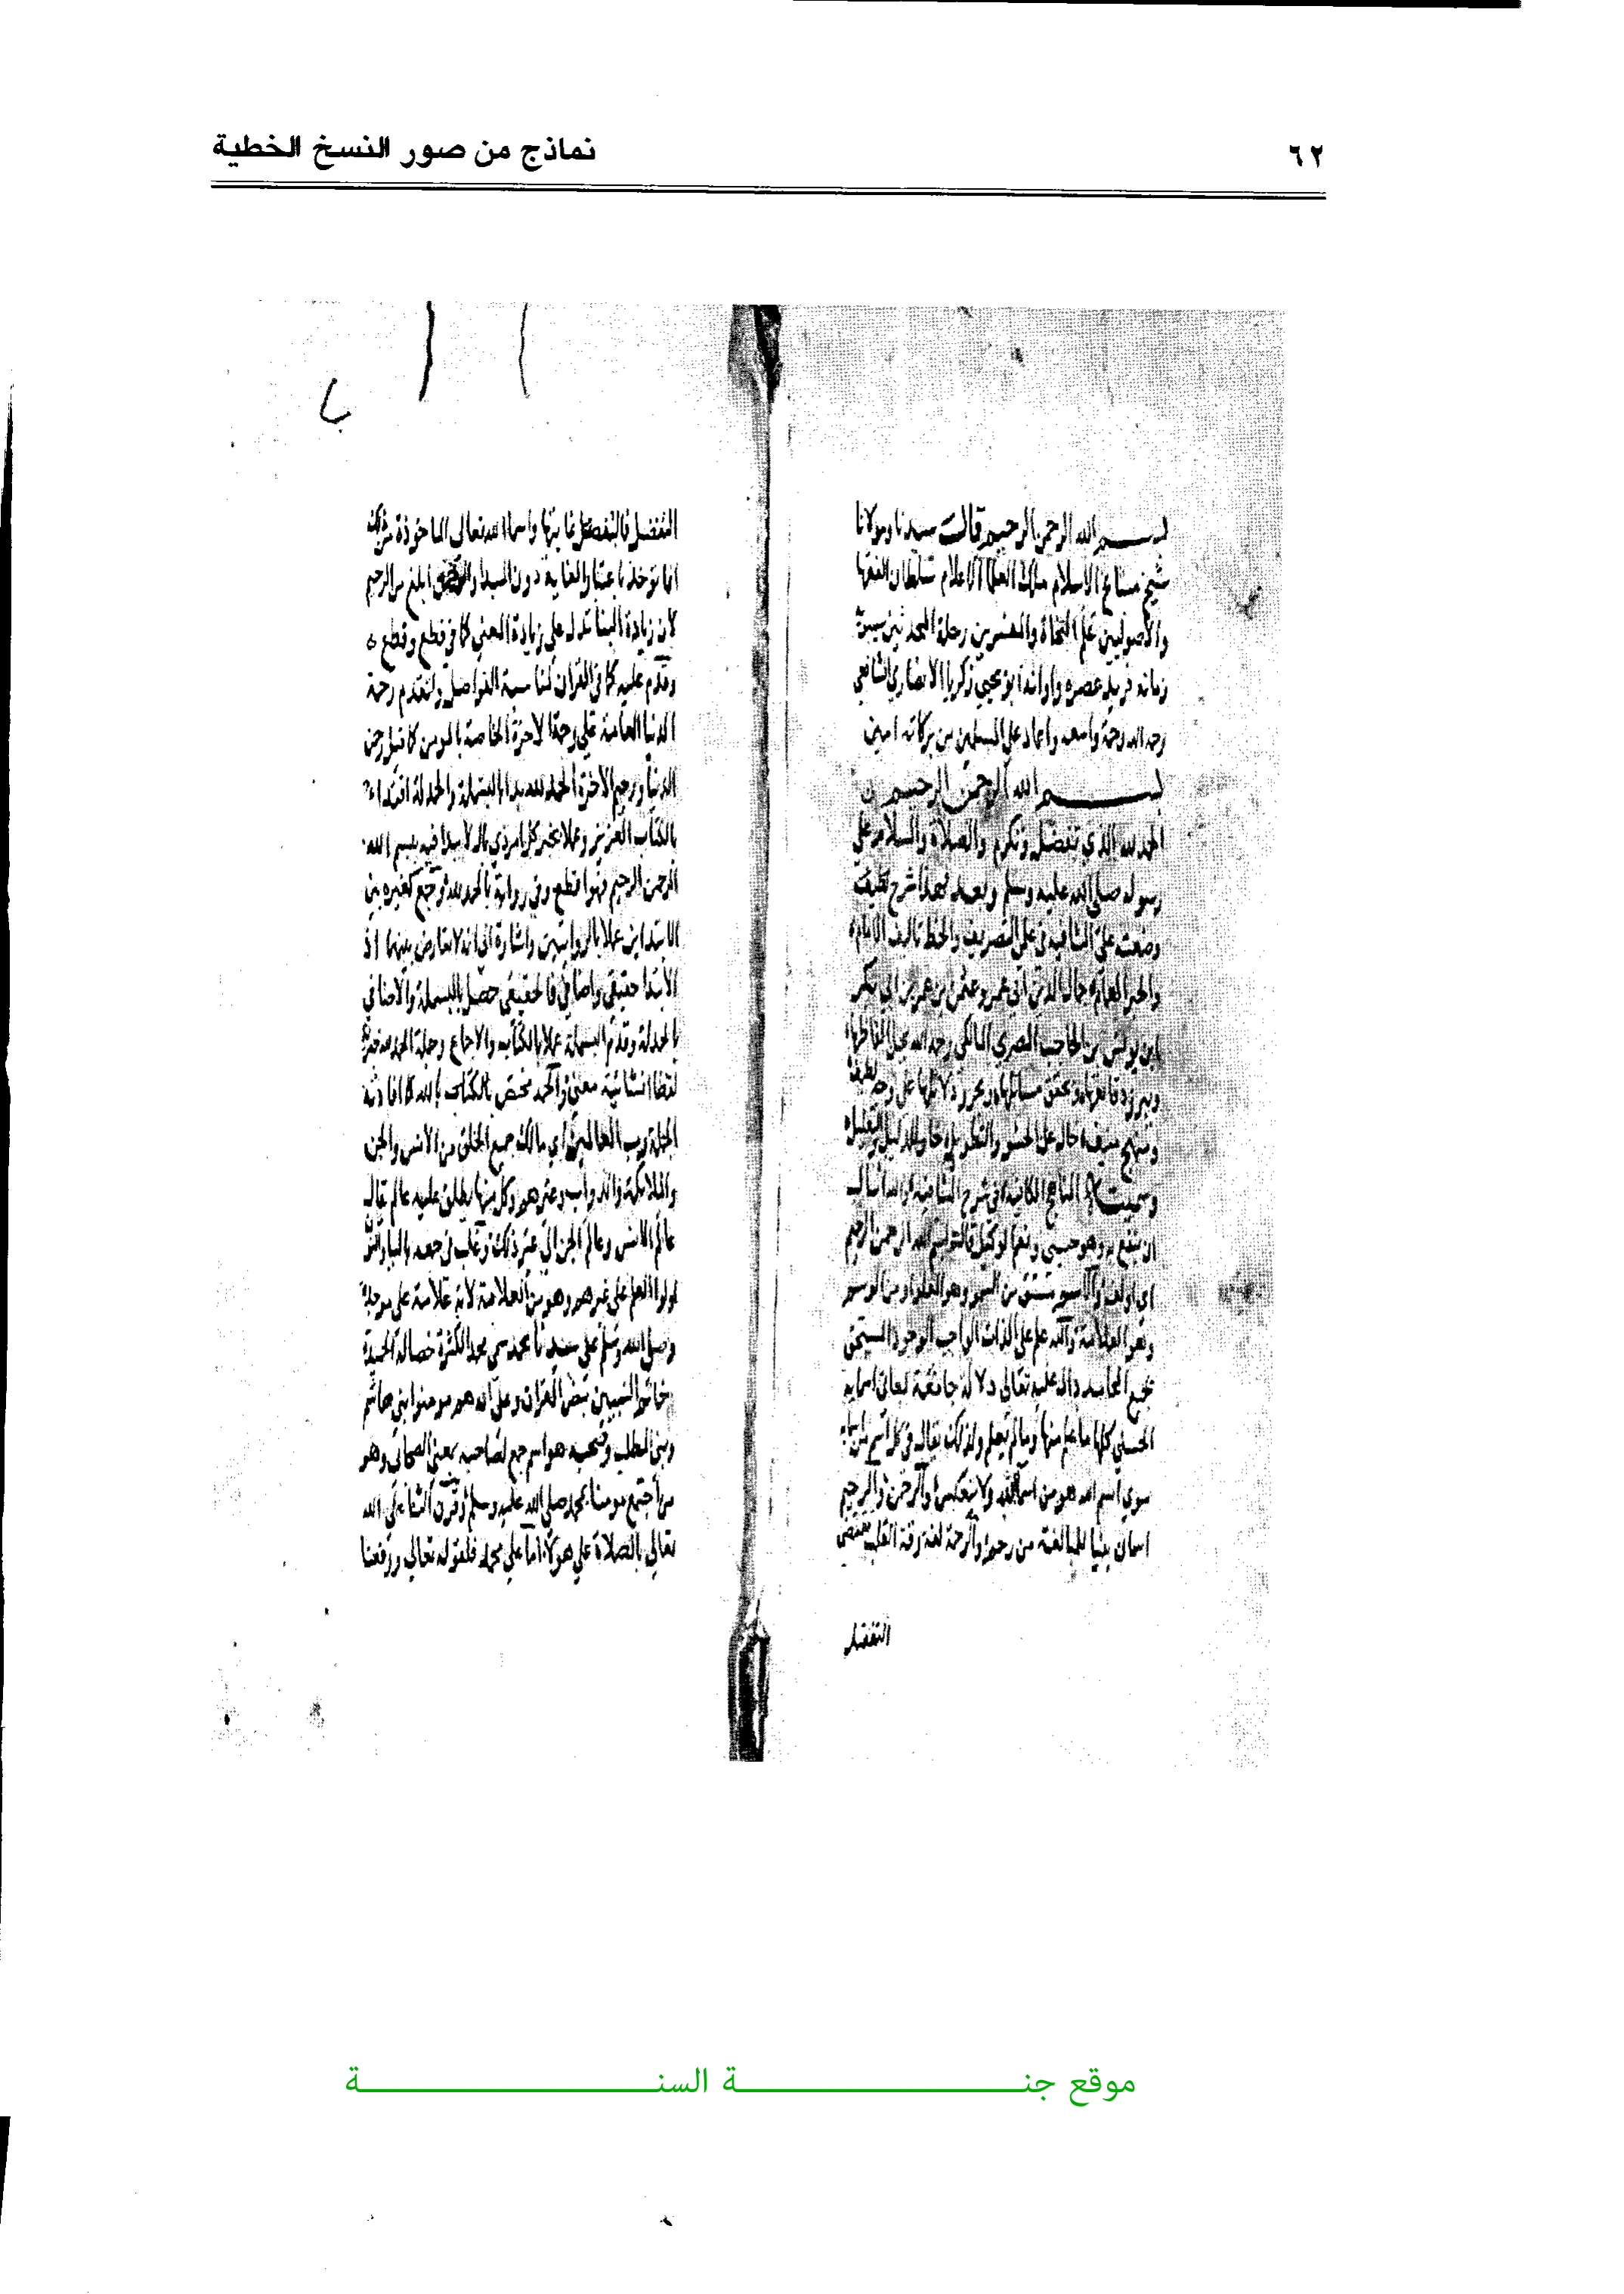 ٦٢
نماذج من صور النسخ الخطية
بسم الله الرحمن الرحيم قال سيدنا ومولانا
شيخ مشايخ الاسلام ملك العلماء الاعلام سلطان الفقها
والاصوليين علم النحاة والمفسرين رحلة المحدثين سيبويه
زمانه فريد عصره واوانه ابو يحيى زكريا الانصاري الشافعي
رحمه الله رحمة واسعه واعاد على المسلمين من بركاته امين
بسم الله الرحمن الرحيم
الحمد لله الذي تفضل وتكرم والصلاة والسلام على
رسوله صلى الله عليه وسلم وبعد فهذا شرح
وضعته على الشافيه في علمي التصريف والخط تاليف الامام
والحبر جمال الدين ابي عمرو عثمن ابن عمر بن ابي بكر
ابن يونس بن الحاجب المصري المالكي رحمه الله يحل الفاظها
ويبرز دقايقها ويحقق مسائلها ويحرر دلائلها على وجه لطيف
ومنهج منيف خال عن الحشو والتطويل حاو للدليل والتعليل
وسميت المناهج الكافيه في شرح الشافيه والله اسال
ان ينفع به وهو حسبي ونعم الوكيل قال بسم الله الرحمن الرحيم
اي اولف والاسم مشتق من السمو وهو العلو او من الوسم
وهو العلامة والله علم على الذات الواجب الوجود المستحق
لجميع المحامد دال عليه تعالى دلالة جامعة لمعاني اسمايه
الحسنى كلها ما علم منها وما لم يعلم ولذلك يقال في كل اسم من اسمايه
سوى اسم الله هو من اسما الله ولا ينعكس والرحمن والرحيم
اسمان بنيا للمبالغة من رحم والرحمة لغة رقة القلب تقتضي
التفضل
التفضل فالتفضل غايتها واسما الله تعالى الماخوذة من ذلك
انما توخذ باعتبار الغاية دون المبدا والرحمن ابلغ من الرحيم
لان زيادة البنا تدل على زيادة المعنى كما في قطع وقطع
وقدم عليه كما في القران لمناسبة الفواصل ولتقدم رحمة
الدنيا العامة على رحمة الاخرة الخاصة بالمومن كما قيل رحمن
الدنيا ورحيم الاخرة الحمد لله بدا بالبسملة والحمدلة اقتداء
بالكتاب العزيز وعملا بخبر كل امر ذي بال لا يبدا فيه ببسم الله
الرحمن الرحيم فهو اقطع وفي رواية بالحمد لله وجمع كغيره بين
الابتداين عملا بالروايتين واشارة الى انه لا تعارض بينهما اذ
الابتدا حقيقي واضافي فالحقيقي حصل بالبسملة والاضافي
بالحمدلة وقدم البسملة عملا بالكتاب والاجماع وجملة الحمد لله خبرية
لفظا انشائية معنى والحمد مختص بالكتاب بالله كما افادته
الجملة رب العالمين اي مالك جميع الخلق من الانس والجن
والملائكة والدواب وغيرهم وكل منها يطلق عليه عالم يقال
عالم الانس وعالم الجن الى غير ذلك وغلب في جمعه بالياء والنون
اولوا العلم على غيرهم وهو من العلامة لانه علامة على موجده
وصلى الله وسلم على سيدنا محمد سمي محمدا لكثرة خصاله الحميدة
خاتم النبيين بنص القران وعلى اله هم مومنوا بني هاشم
وبني المطلب وصحبه هو اسم جمع لصاحبه بمعنى الصحابي وهو
من اجتمع مومنا بمحمد صلى الله عليه وسلم وقرن الثنا على الله
تعالى بالصلاة على هولاء اما على محمد فلقوله تعالى ورفعنا
موقع جنة السنة